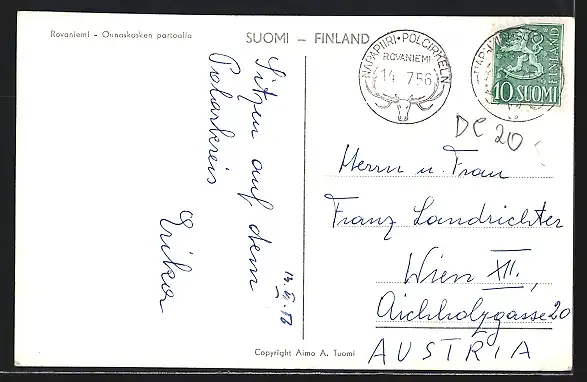 Rovaniemi - Ounaskosken partaalla
SUOMI – FINLAND
NAPAPIIRI • POLCIRKELN
ROVANIEMI
14. 7.56
FINLAND
10 SUOMI
DC 20
Sitzen auf dem
Polarkreis
Erika
Herrn u. Frau
Franz Landrichter
Wien XII.,
Aichholzgasse 20
AUSTRIA
Copyright Aimo A. Tuomi